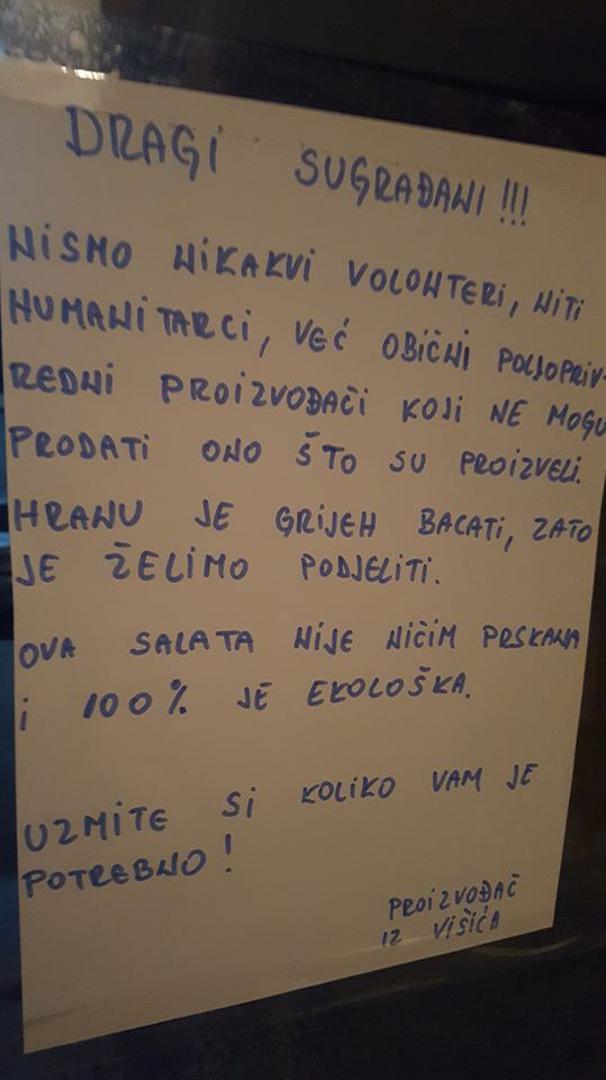 DRAGI SUGRAĐANI!!!
NISMO NIKAKVI VOLONTERI, NITI
HUMANITARCI, VEĆ OBIČNI POLJOPRIV-
REDNI PROIZVOĐAČI KOJI NE MOGU
PRODATI ONO ŠTO SU PROIZVELI.
HRANU JE GRIJEH BACATI, ZATO
JE ŽELIMO PODJELITI.
OVA SALATA NIJE NIČIM PRSKANA
I 100% JE EKOLOŠKA.
UZMITE SI KOLIKO VAM JE
POTREBNO!
PROIZVOĐAČ
IZ VIŠIĆA